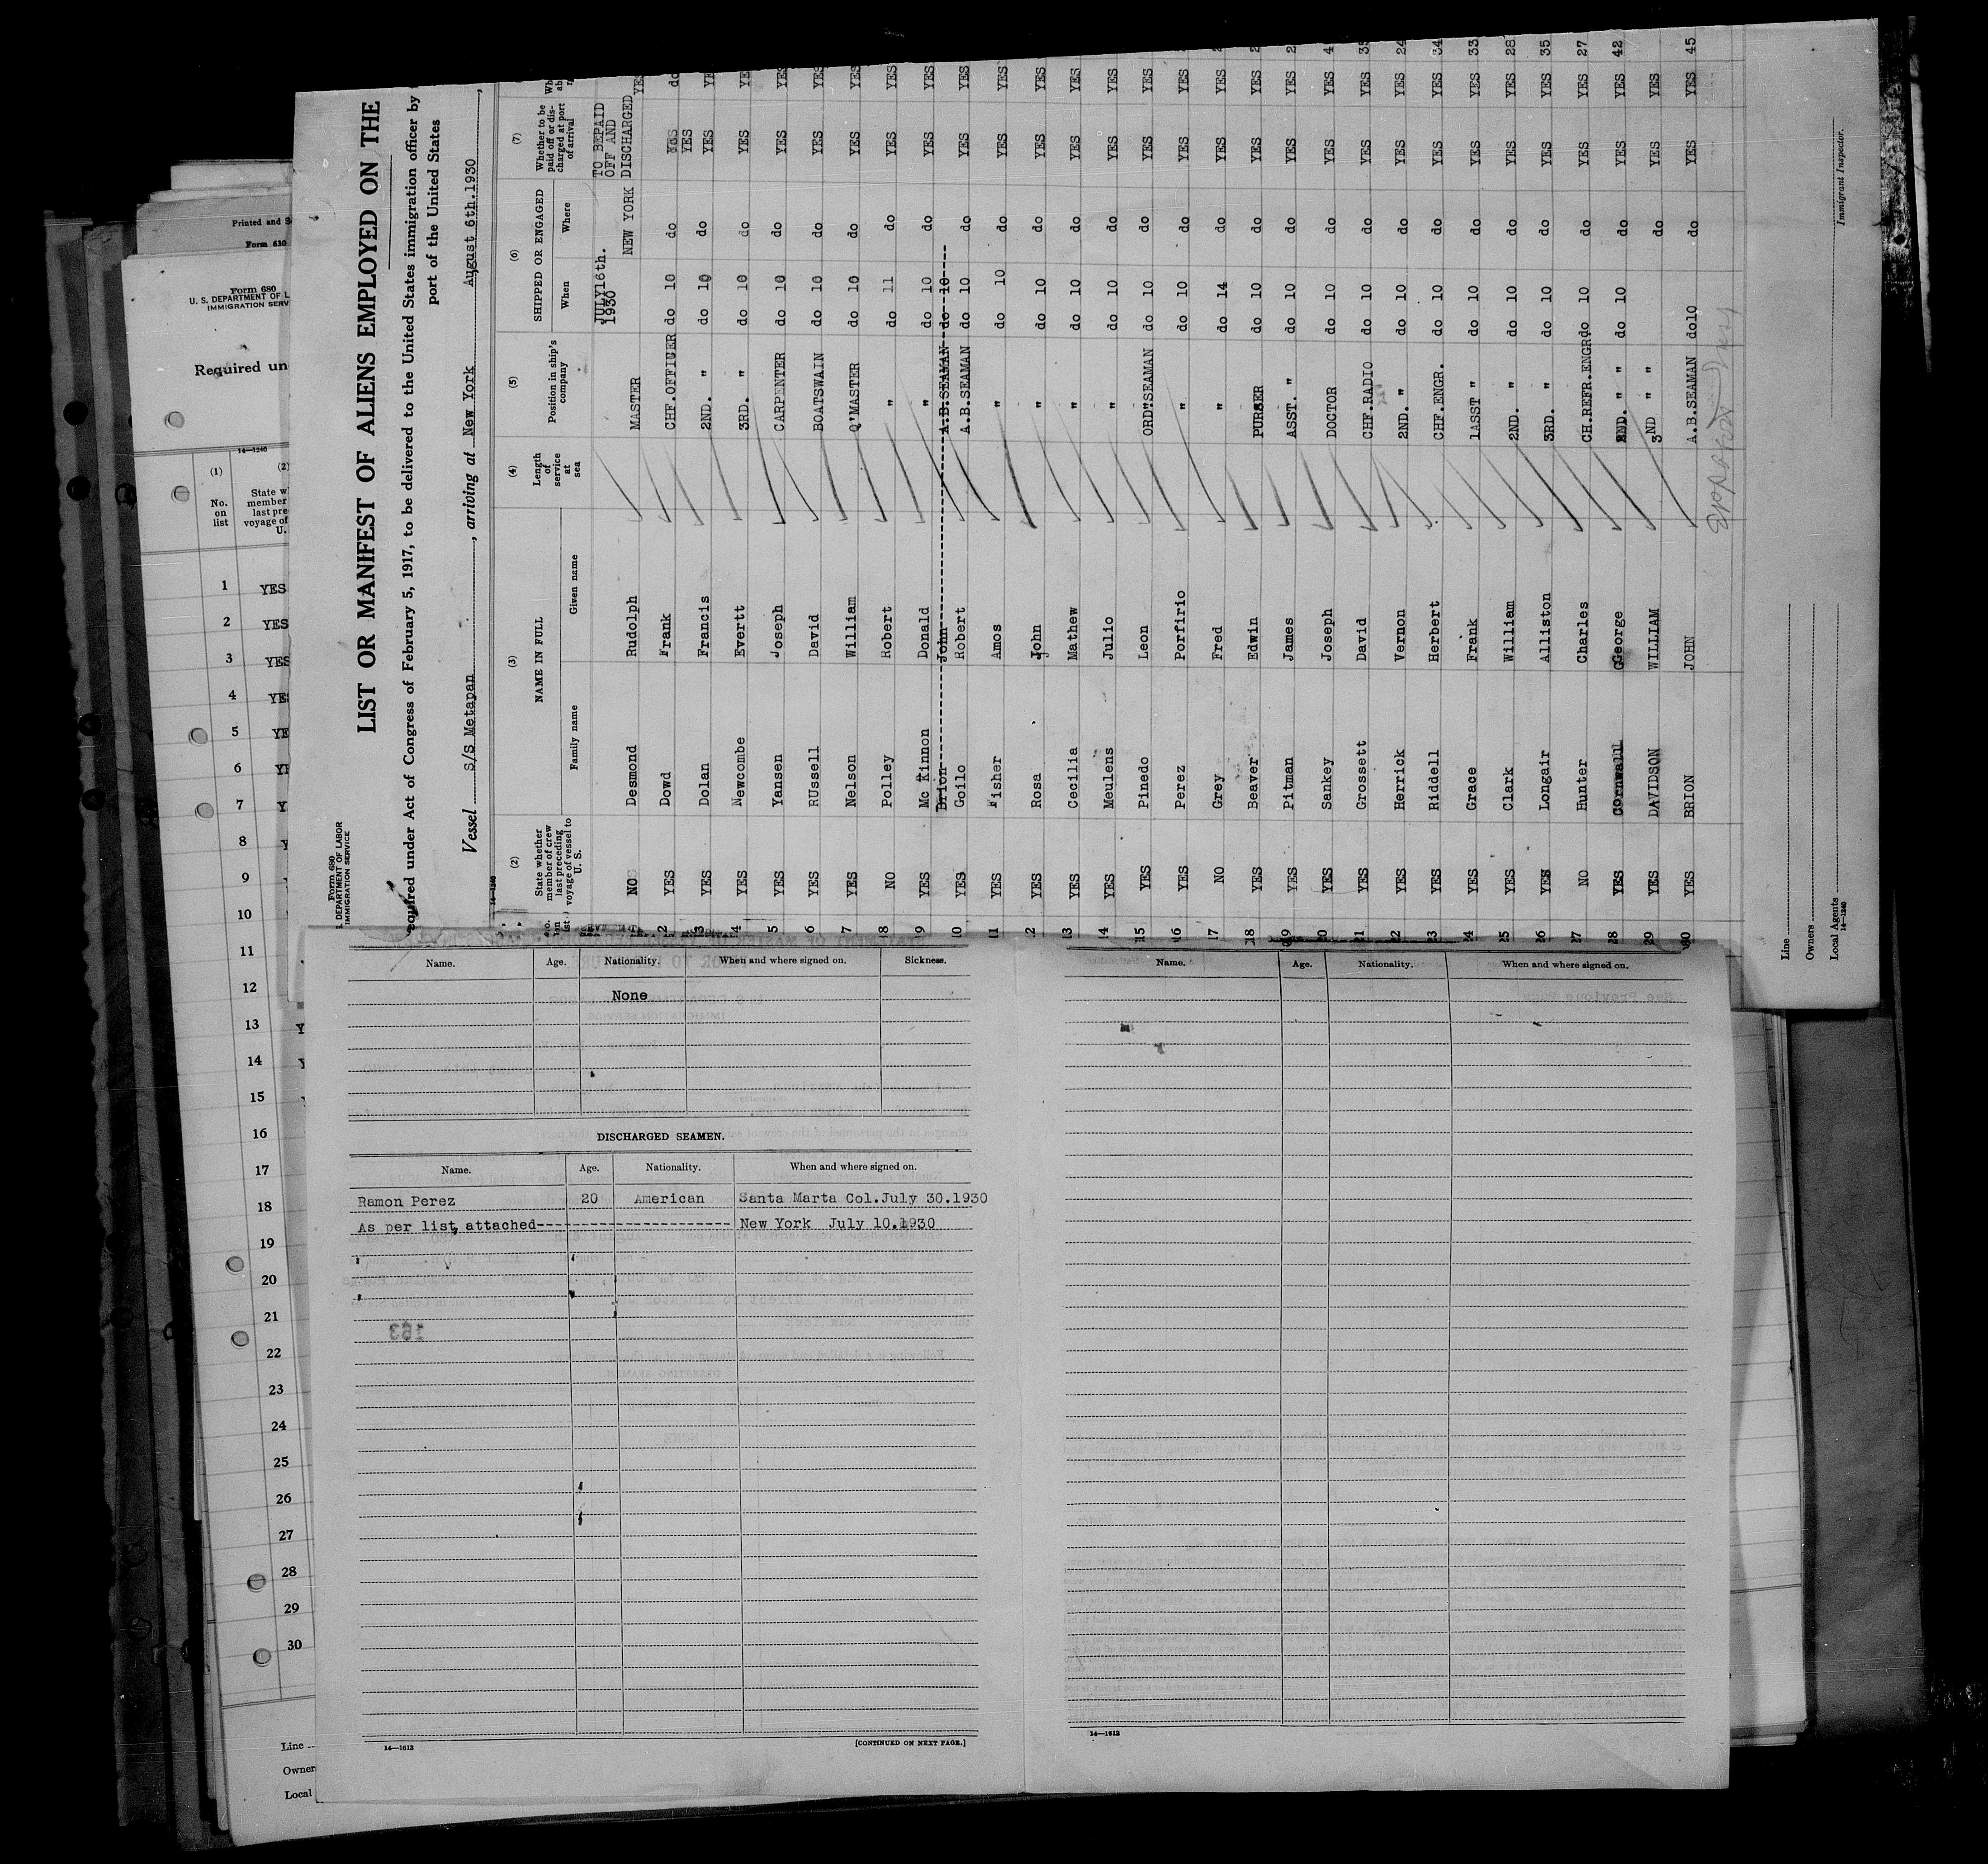 Printed and
Form 630
Form 680
U. S. DEPARTMENT OF L
IMMIGRATION SERV
Required un
14—1240
(1) (2)
No. on list
State w
member
last pre
voyage of
U.
1 YES
2 YES
3 YES
4 YES
5 YE
6
7 Y
8
9
10
11
12
13 Y
14
15
16
17
18
19
20
21
22
23
24
25
26
27
28
29
30
Line
Owner
Local
Form 680
DEPARTMENT OF LABOR
IMMIGRATION SERVICE
LIST OR MANIFEST OF ALIENS EMPLOYED ON THE
equired under Act of Congress of February 5, 1917, to be delivered to the United States immigration officer by
port of the United States
Vessel S/S Metapan, arriving at New York August 6th.1930,
14—1240
(2) (3) (4) (5) (6) (7)
State whether member of crew last preceding voyage of vessel to U. S.
NAME IN FULL
Family name Given name
Length of service at sea
Position in ship's company
SHIPPED OR ENGAGED
When Where
Whether to be paid off or discharged at port of arrival
JULY16th. 1930 TO BEPAID OFF AND
NO Desmond Rudolph MASTER NEW YORK DISCHARGED YES
2 YES Dowd Frank CHF.OFFICER do 10 do YES do
3 YES Dolan Francis 2ND. " do 10 do YES YE
4 YES Newcombe Evertt 3RD. " do 10 do YES YE
5 YES Yansen Joseph CARPENTER do 10 do YES YES
6 YES RUssell David BOATSWAIN do 10 do YES YES
7 YES Nelson William Q'MASTER do 10 do YES YES
8 NO Polley Robert " do 11 do YES YES
9 YES Mc Kinnon Donald " do 10 do YES YES
Brion John A.B.SEAMAN do 10
10 YES Goilo Robert A.B.SEAMAN do 10 do YES YES
11 YES Fisher Amos " do 10 do YES YES
12 YES Rosa John " do 10 do YES YES
13 YES Cecilia Mathew " do 10 do YES YES
14 YES Meulens Julio " do 10 do YES YES
15 YES Pinedo Leon ORD"SEAMAN do 10 do YES YES
16 YES Perez Porfirio " do 10 do YES YES
17 NO Grey Fred " do 14 do YES YES
18 YES Beaver Edwin PURSER do 10 do YES YES 2
19 YES Pitman James ASST. " do 10 do YES YES 2
20 YES Sankey Joseph DOCTOR do 10 do YES YES 4
21 YES Grossett David CHF.RADIO do 10 do YES YES 35
22 YES Herrick Vernon 2ND. " do 10 do YES YES 24
23 YES Riddell Herbert CHF.ENGR. do 10 do YES YES 34
24 YES Grace Frank 1ASST " do 10 do YES YES 33
25 YES Clark William 2ND. " do 10 do YES YES 28
26 YES Longair Alliston 3RD. " do 10 do YES YES 35
27 NO Hunter Charles CH.REFR.ENGR. do 10 do YES YES 27
28 YES Cornwall George 2ND. " " do 10 do YES YES 42
29 YES DAVIDSON WILLIAM 3ND " " do YES YES
30 YES BRION JOHN A.B.SEAMAN do10 do YES YES 45
Line
Owners
Local Agents
14—1240
Immigrant Inspector.
Name. Age. Nationality. When and where signed on. Sickness.
None
DISCHARGED SEAMEN.
Name. Age. Nationality. When and where signed on.
Ramon Perez 20 American Santa Marta Col.July 30.1930
As per list, attached----------------------- New York July 10.1930
163
14—1613
[CONTINUED ON NEXT PAGE.]
Name. Age. Nationality. When and where signed on.
14—1613